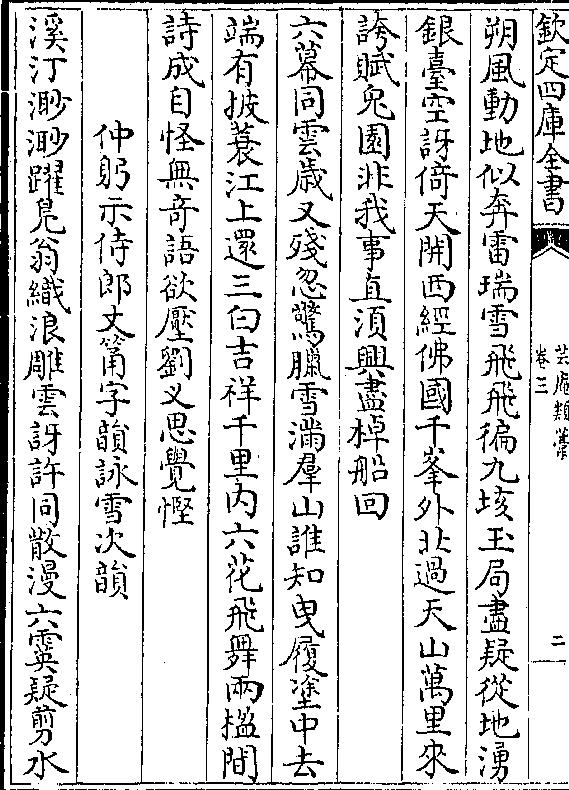 欽定四庫全書
芸庵類藁
卷三
二
朔風動地似奔雷瑞雪飛飛徧九垓玉局盡疑從地湧
銀臺空訝倚天開西經佛國千峯外北過天山萬里來
誇賦兔園非我事直須興盡棹船回
六幕同雲歳又殘忽驚臘雪滿羣山誰知曳履塗中去
端有披蓑江上還三白吉祥千里内六花飛舞兩楹間
詩成自怪無竒語欲壓劉乂思覺慳
仲躬示侍郎丈篛字韻詠雪次韻
溪汀渺渺躍凫翁織浪雕雲訝許同散漫六霙疑剪水